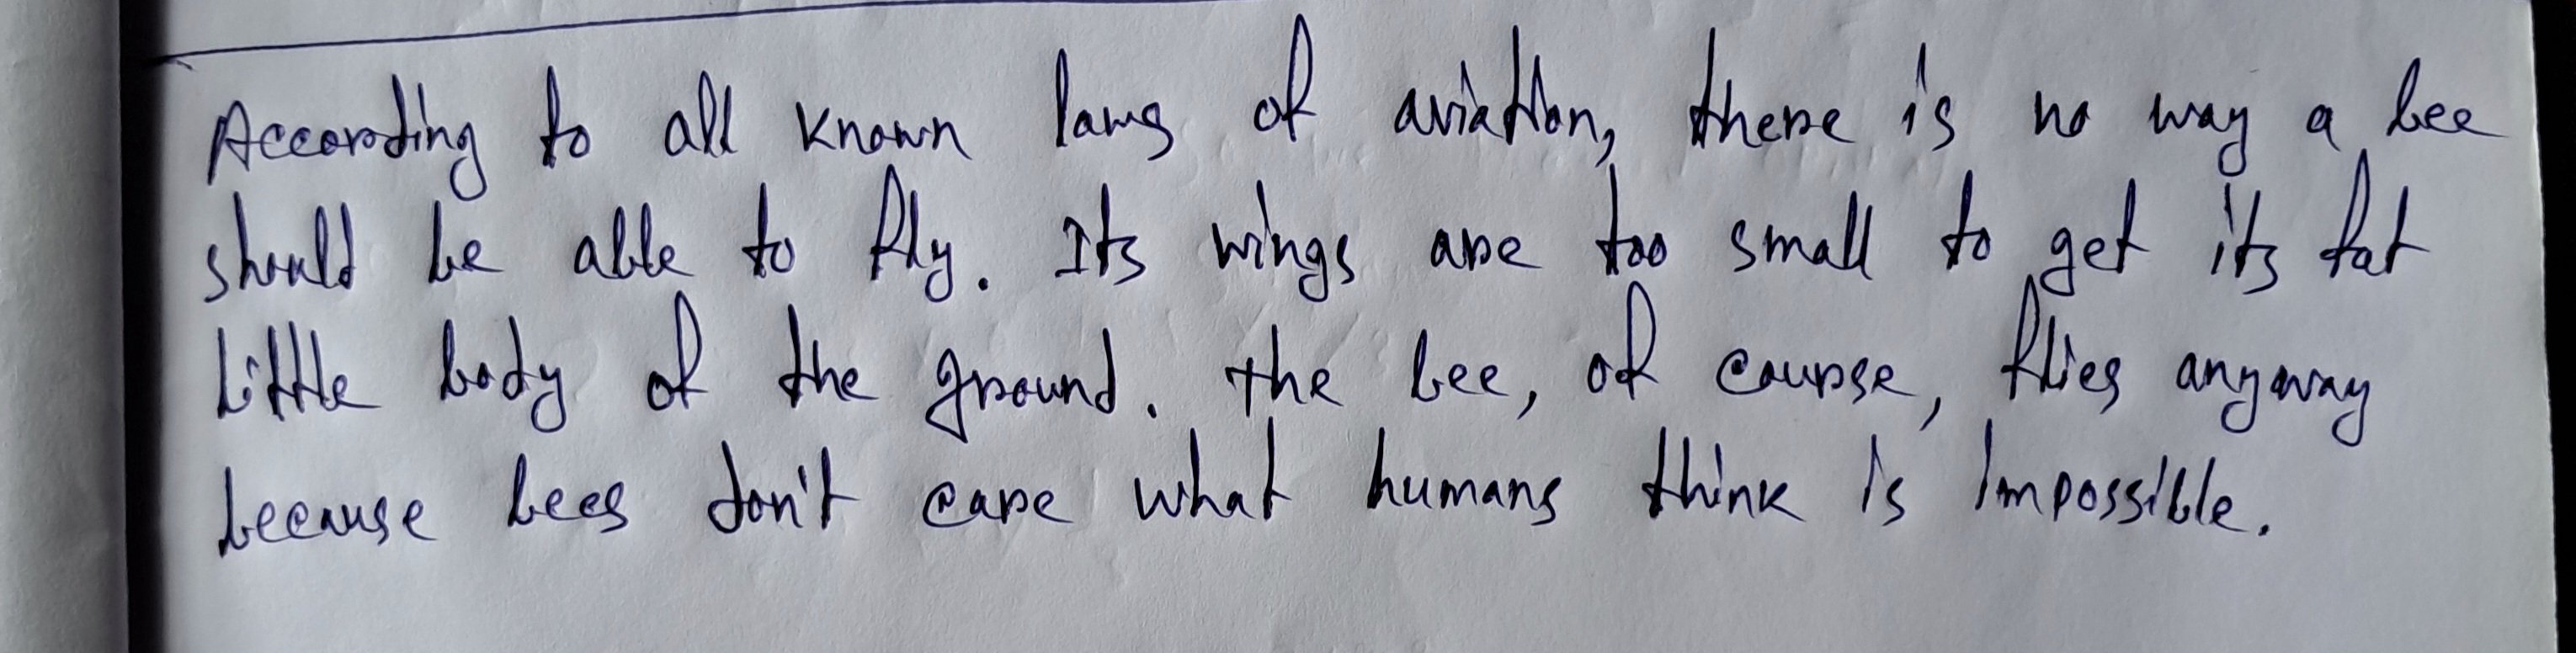 According to all known laws of aviation, there is no way a bee
should be able to fly. Its wings are too small to get its fat
little body of the ground. the bee, of course, flies anyway
because bees don't care what humans think is impossible.